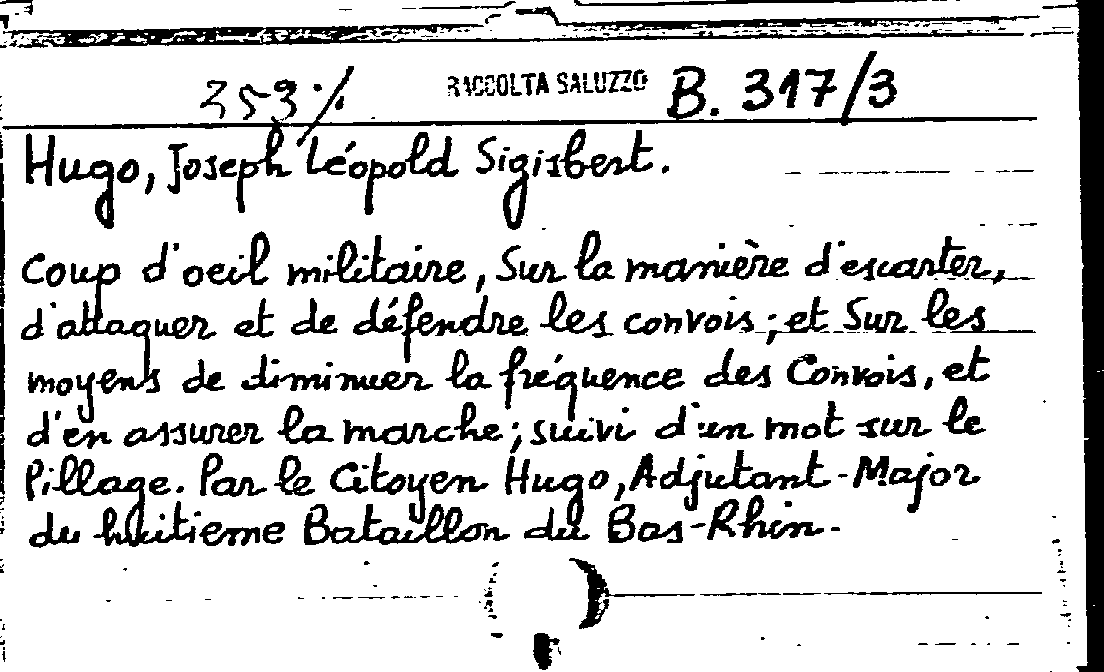 353% RACCOLTA SALUZZO B. 317/3
Hugo, Joseph Léopold Sigisbert.
Coup d'oeil militaire, Sur la manière d'escarter,
d'attaquer et de défendre les convois; et Sur les
moyens de diminuer la fréquence des Convois, et
d'en assurer la marche; suivi d'un mot sur le
Pillage. Par le Citoyen Hugo, Adjutant-Major
du huitieme Bataillon du Bas-Rhin.